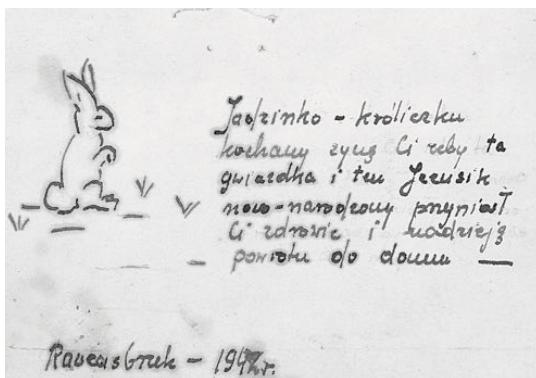 Jadzinko - króliczku
kochany życzę Ci żeby ta
gwiazdka i ten Jezusik
nowo-narodzony przyniósł
Ci zdrowie i nadzieję
powrotu do domu —
Ravensbruk - 1942r.